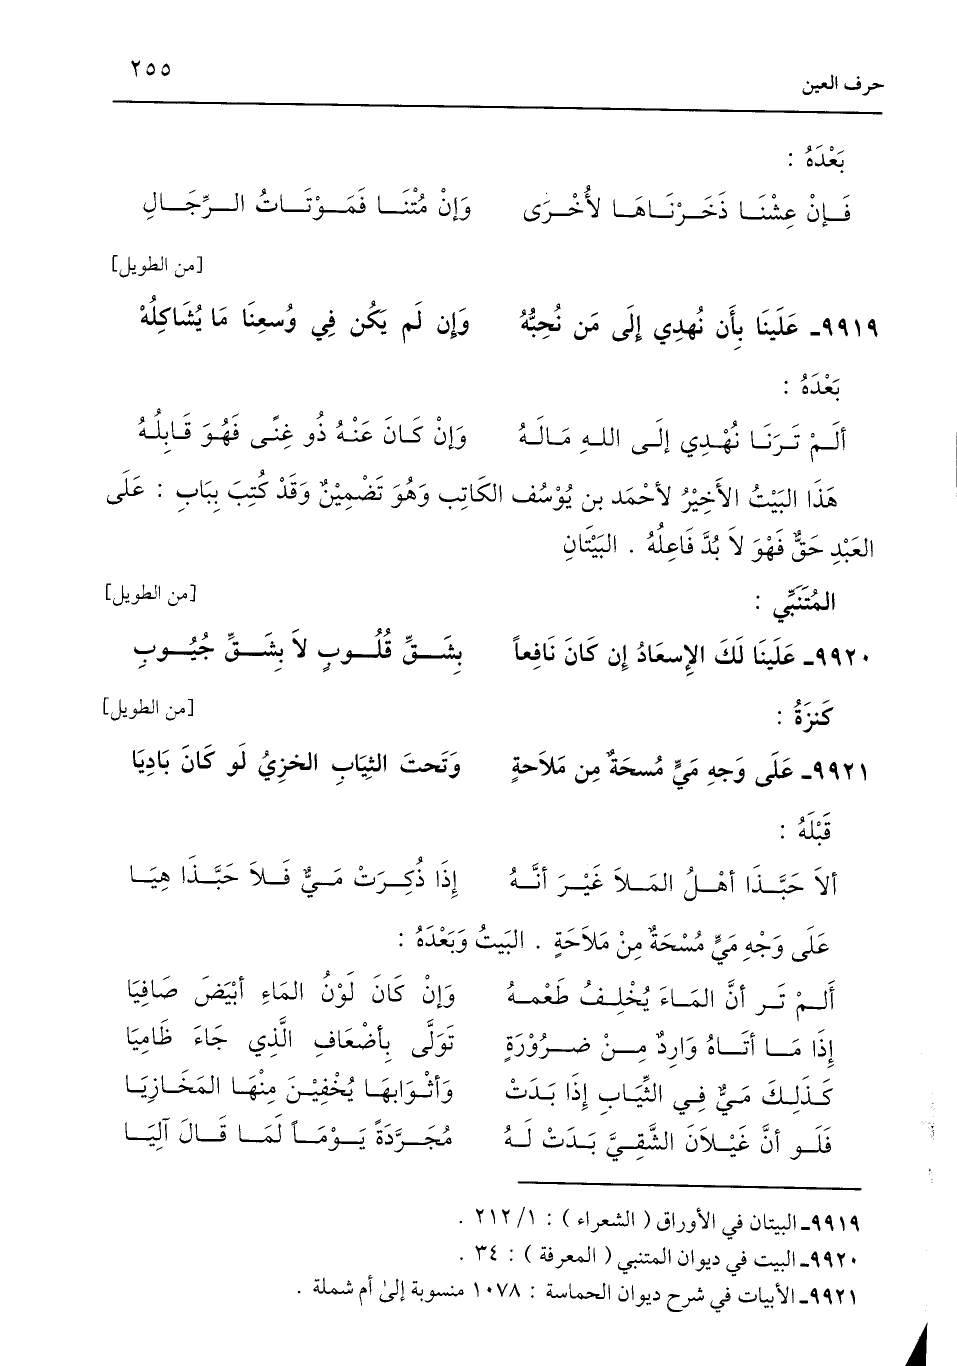 حرف العين ٢٥٥
بَعْدَهُ :
فَإِنْ عِشْنَا ذَخَرْنَاهَا لأُخْرَى وَإِنْ مُتْنَا فَمَوْتَاتُ الرِّجَالِ
[من الطويل]
٩٩١٩ـ عَلَينَا بِأَن نُهدِي إِلَى مَن نُحِبُّهُ وَإِن لَم يَكُن فِي وُسعِنَا مَا يُشَاكِلُهْ
بَعْدَهُ :
أَلَمْ تَرَنَا نُهْدِي إِلَى اللهِ مَالَهُ وَإِنْ كَانَ عَنْهُ ذُو غِنًى فَهُوَ قَابِلُهْ
هَذَا البَيْتُ الأَخِيْرُ لأَحْمَد بن يُوْسُف الكَاتِبِ وَهُوَ تَضْمِيْنٌ وَقَدْ كُتِبَ بِبَابِ : عَلَى
العَبْدِ حَقٌّ فَهْوَ لاَ بُدَّ فَاعِلُهُ . البَيْتَانِ
المُتَنَبِّي : [من الطويل]
٩٩٢٠ـ عَلَينَا لَكَ الإِسعَادُ إِن كَانَ نَافِعاً بِشَقِّ قُلُوبٍ لاَ بِشَقِّ جُيُوبِ
كَنزَةُ : [من الطويل]
٩٩٢١ـ عَلَى وَجهِ مَيٍّ مُسحَةٌ مِن مَلاَحةٍ وَتَحتَ الثِيَابِ الخزِيُ لَو كَانَ بَادِيَا
قَبْلَهُ :
ألاَ حَبَّذَا أهْلُ المَلاَ غَيْرَ أنَّهُ إِذَا ذُكِرَتْ مَيٌّ فَلاَ حَبَّذَا هِيَا
عَلَى وَجْهِ مَيٍّ مُسْحَةٌ مِنْ مَلاَحَةٍ . البَيتُ وَبَعْدَهُ :
أَلَمْ تَر أنَّ المَاءَ يُخْلِفُ طَعْمهُ وَإِنْ كَانَ لَوْنُ المَاءِ أبْيَضَ صَافِيَا
إِذَا مَا أتَاهُ وَارِدٌ مِنْ ضرُوْرَةٍ تَوَلَّى بِأضْعَافِ الَّذِي جَاءَ ظَامِيَا
كَذَلِكَ مَيٌّ فِي الثِّيَابِ إِذَا بَدَتْ وَأثْوابهَا يُخْفِيْنَ مِنْهَا المَخَازِيَا
فَلَو أنَّ غَيْلاَنَ الشَّقِيَّ بَدَتْ لَهُ مُجَرَّدَةً يَوْمَاً لَمَا قَالَ آلِيَا
٩٩١٩ـ البيتان في الأوراق ( الشعراء ) : ١/ ٢١٢ .
٩٩٢٠ـ البيت في ديوان المتنبي ( المعرفة ) : ٣٤ .
٩٩٢١ـ الأبيات في شرح ديوان الحماسة : ١٠٧٨ منسوبة إلى أم شملة .